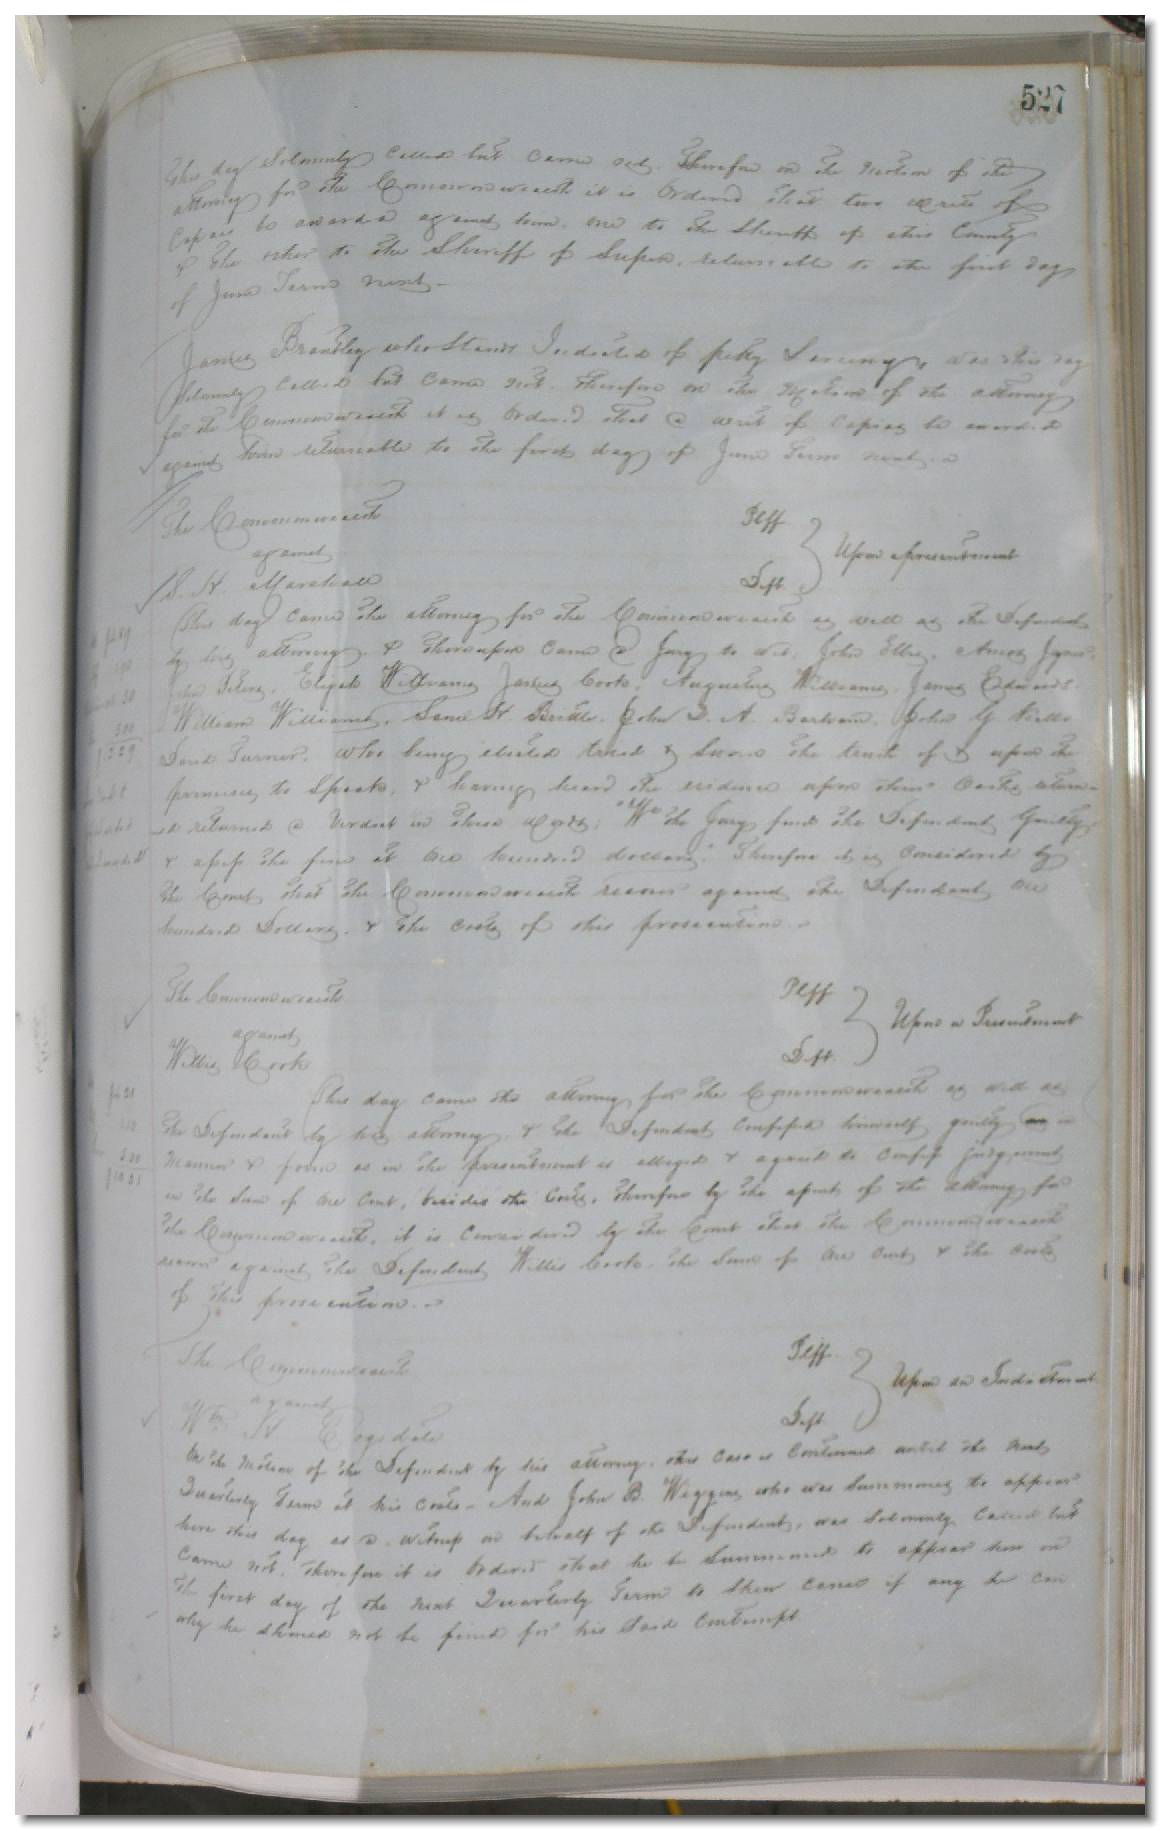 527
this day Solemnly Called but came not. Therefore on the Motion of the
attorney for the Commonwealth it is Ordered that two writs of
Capias be awarded against him, one to the Sheriff of this County
& the other to the Sheriff of returnable to the first day
of June Term next.
James Brantley who Stands Indicted of petty Larceny, was this day
Solemnly Called but came not. Therefore on the Motion of the attorney
for the Commonwealth it is Ordered that a writ of Capias be awarded
against him returnable to the first day of June Term next.
The Commonwealth Plff
against Upon a presentment
S. H. Marshall Deft
This day came the attorney for the Commonwealth as well as the Defendant
by his attorney, & thereupon came a Jury to wit, John Amos
John Elijah Williams James Cook, Augustus Williams, James Edwards
William Williams, Saml H. John D. A. John G.
David Turner, who being elected tried & Sworn the truth of & upon the
premises to Speak, & having heard the evidence upon their Oaths return
ed returned a Verdict in these words; "We the Jury find the Defendant Guilty
& assess the fine at One hundred dollars." Therefore it is Considered by
the Court that the Commonwealth recover against the Defendant One
hundred Dollars, & the costs of this prosecution.
The Commonwealth Plff
against Upon a Presentment
Willis Cook Deft.
This day came the attorney for the Commonwealth as well as
the Defendant by his attorney, & the Defendant Confessed himself guilty in
Manner & form as in the presentment is alleged & agreed to Confess judgement
in the Sum of One Cent, besides the Costs, Therefore by the assent of the attorney for
the Commonwealth, it is Considered by the Court that the Commonwealth
recover against the Defendant Willis Cook the Sum of One Cent & the costs
of this prosecution.
The Commonwealth Plff.
against Upon an Indictment
Wm H Cogsdale Deft
On the Motion of the Defendant by his attorney, this Case is Continued until the next
Quarterly Term at his Costs. And John B. Wiggins who was Summoned to appear
here this day as a witness on behalf of the Defendant, was Solemnly Called but
Came not, Therefore it is Ordered that he be Summoned to appear here on
the first day of the next Quarterly Term to Shew cause if any he can
why he should not be fined for his Said Contempt